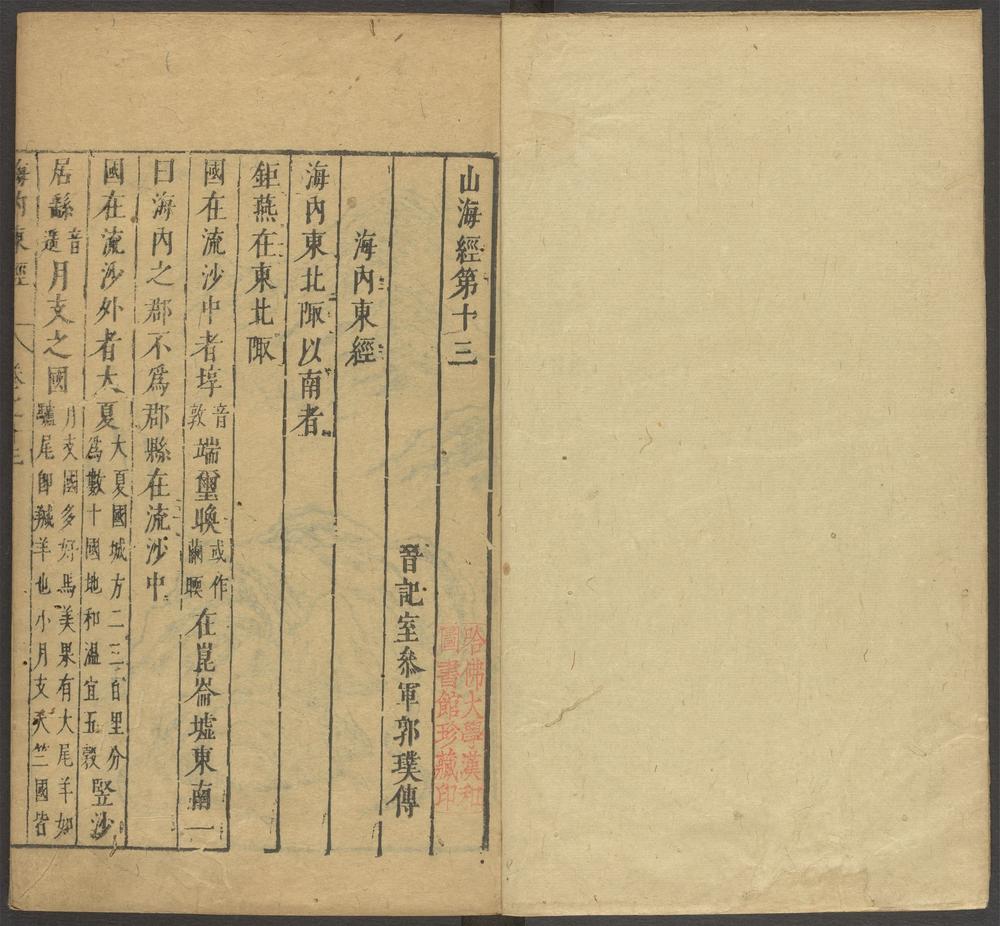 山海經第十三
晉記室叅軍郭璞傳
海內東經
海內東北陬以南者
鉅燕在東北陬
國在流沙中者埻音敦端璽㬇或作繭暥在崑崙墟東南一
曰海內之郡不爲郡縣在流沙中
國在流沙外者大夏大夏國城方二三百里分爲數十國地和温宜五穀豎沙
居繇音遥月支之國月支國多好馬美果有大尾羊如驢尾卽羬羊也小月支天竺國皆
海內東經
哈佛大學漢和
圖書館珍藏印